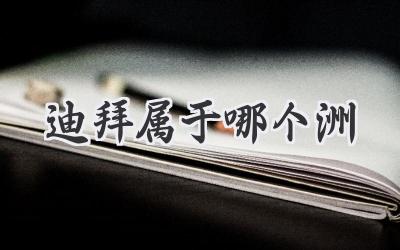 迪拜属于哪个洲